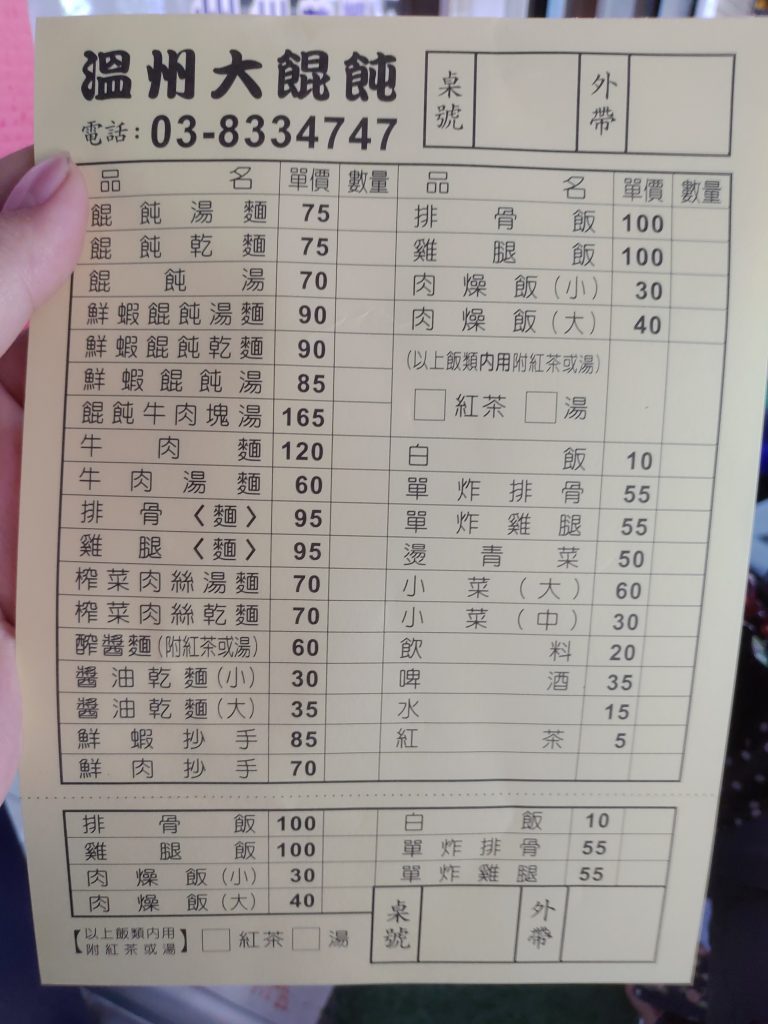 溫州大餛飩
電話：03-8334747
桌號 外帶
品名 單價 數量 品名 單價 數量
餛飩湯麵 75
餛飩乾麵 75
餛飩湯 70
鮮蝦餛飩湯麵 90
鮮蝦餛飩乾麵 90
鮮蝦餛飩湯 85
餛飩牛肉塊湯 165
牛肉麵 120
牛肉湯麵 60
排骨〈麵〉 95
雞腿〈麵〉 95
榨菜肉絲湯麵 70
榨菜肉絲乾麵 70
酢醬麵(附紅茶或湯) 60
醬油乾麵(小) 30
醬油乾麵(大) 35
鮮蝦抄手 85
鮮肉抄手 70
排骨飯 100
雞腿飯 100
肉燥飯(小) 30
肉燥飯(大) 40
(以上飯類內用附紅茶或湯)
紅茶 湯
白飯 10
單炸排骨 55
單炸雞腿 55
燙青菜 50
小菜(大) 60
小菜(中) 30
飲料 20
啤酒 35
水 15
紅茶 5
排骨飯 100
雞腿飯 100
肉燥飯(小) 30
肉燥飯(大) 40
白飯 10
單炸排骨 55
單炸雞腿 55
【以上飯類內用
附紅茶或湯】 紅茶 湯
桌號 外帶